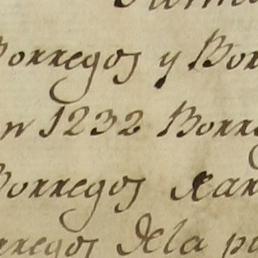 Borregos y Bor
n 1232 Borre
Borregos
rregos de la p